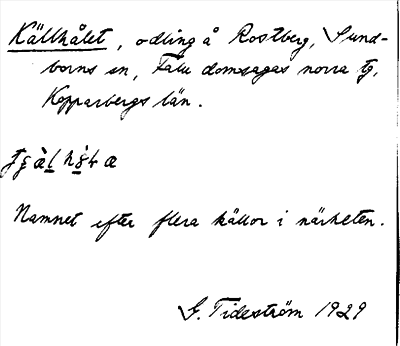 Källhålet, odling å Rostberg, Sund-
borns sn, Falu domsagas norra tg,
Kopparbergs län.
Namnet efter flera källor i närheten.
G. Tideström 1929